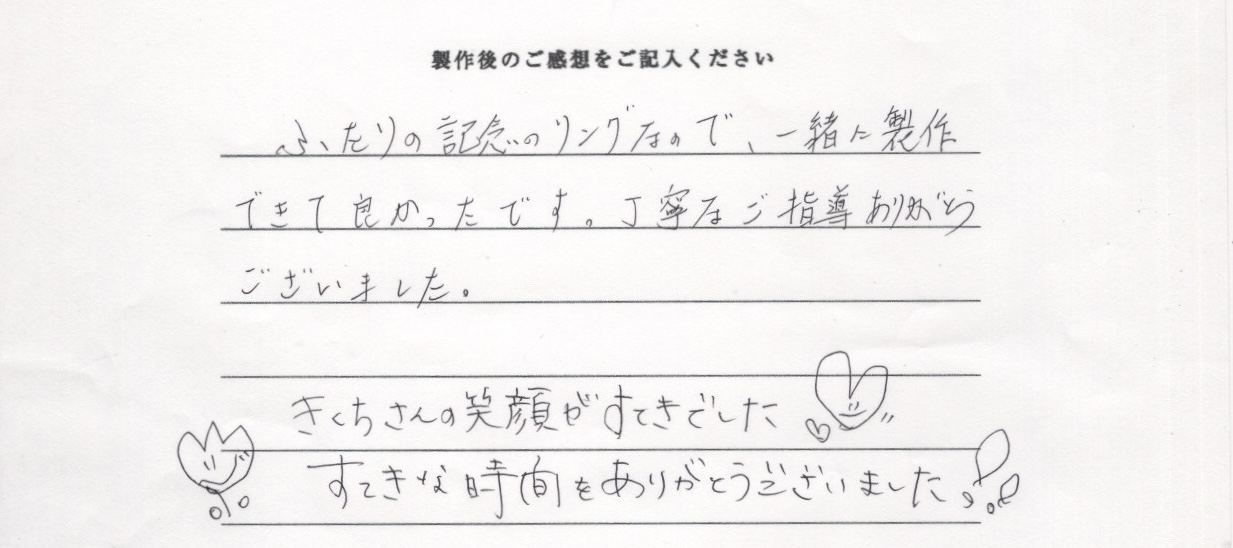 製作後のご感想をご記入ください
ふたりの記念のリングなので、一緒に製作
できて良かったです。丁寧なご指導ありがとう
ございました。
きくちさんの笑顔がすてきでした
すてきな時間をありがとうございました